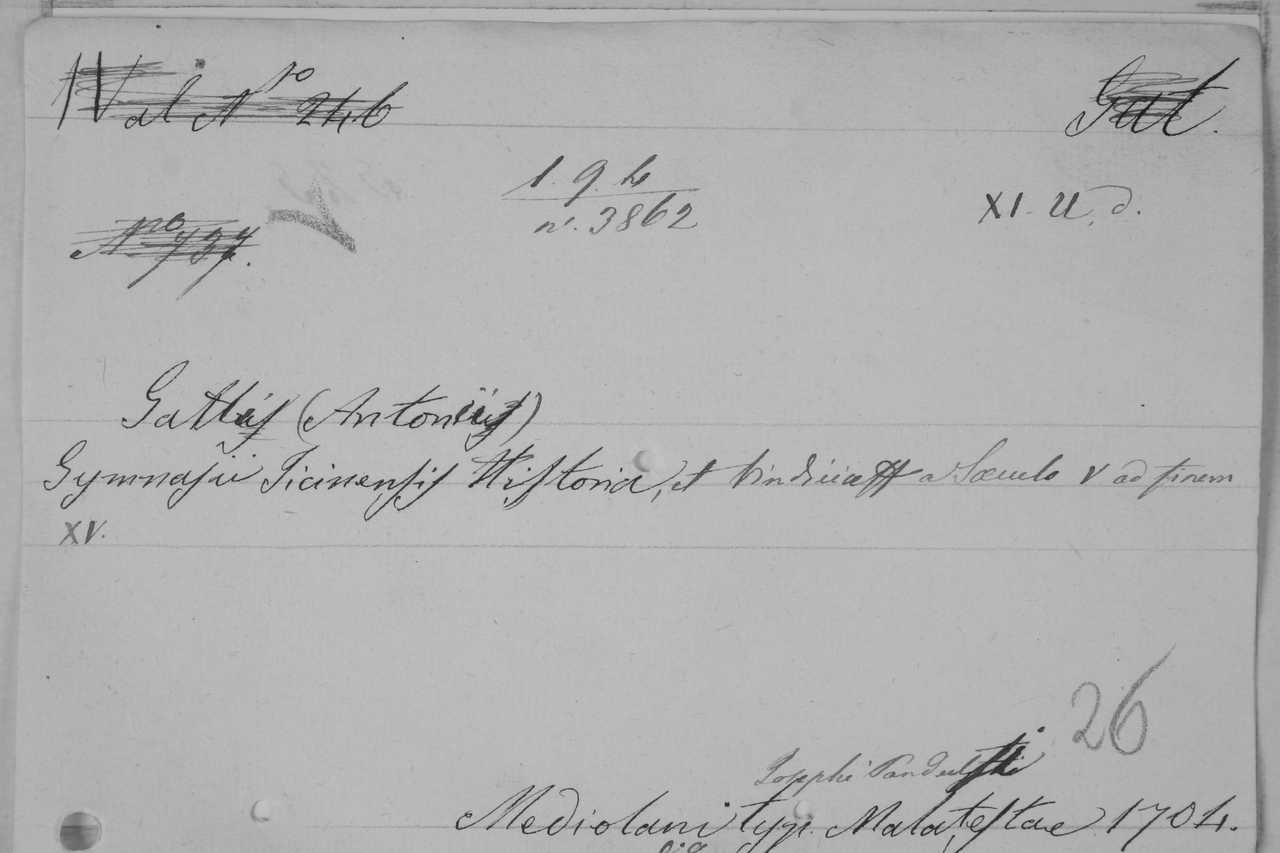 IV al No 246
Gat.
1. g. h
n. 3862
XI. U. d.
No 737.
Gattus (Antonius)
Gymnasii Ticinensis Historia, et Vindiciae a Sæculo V ad finem
XV.
26
Josephi Pandulfi
Mediolani typ. Malatestae 1704.